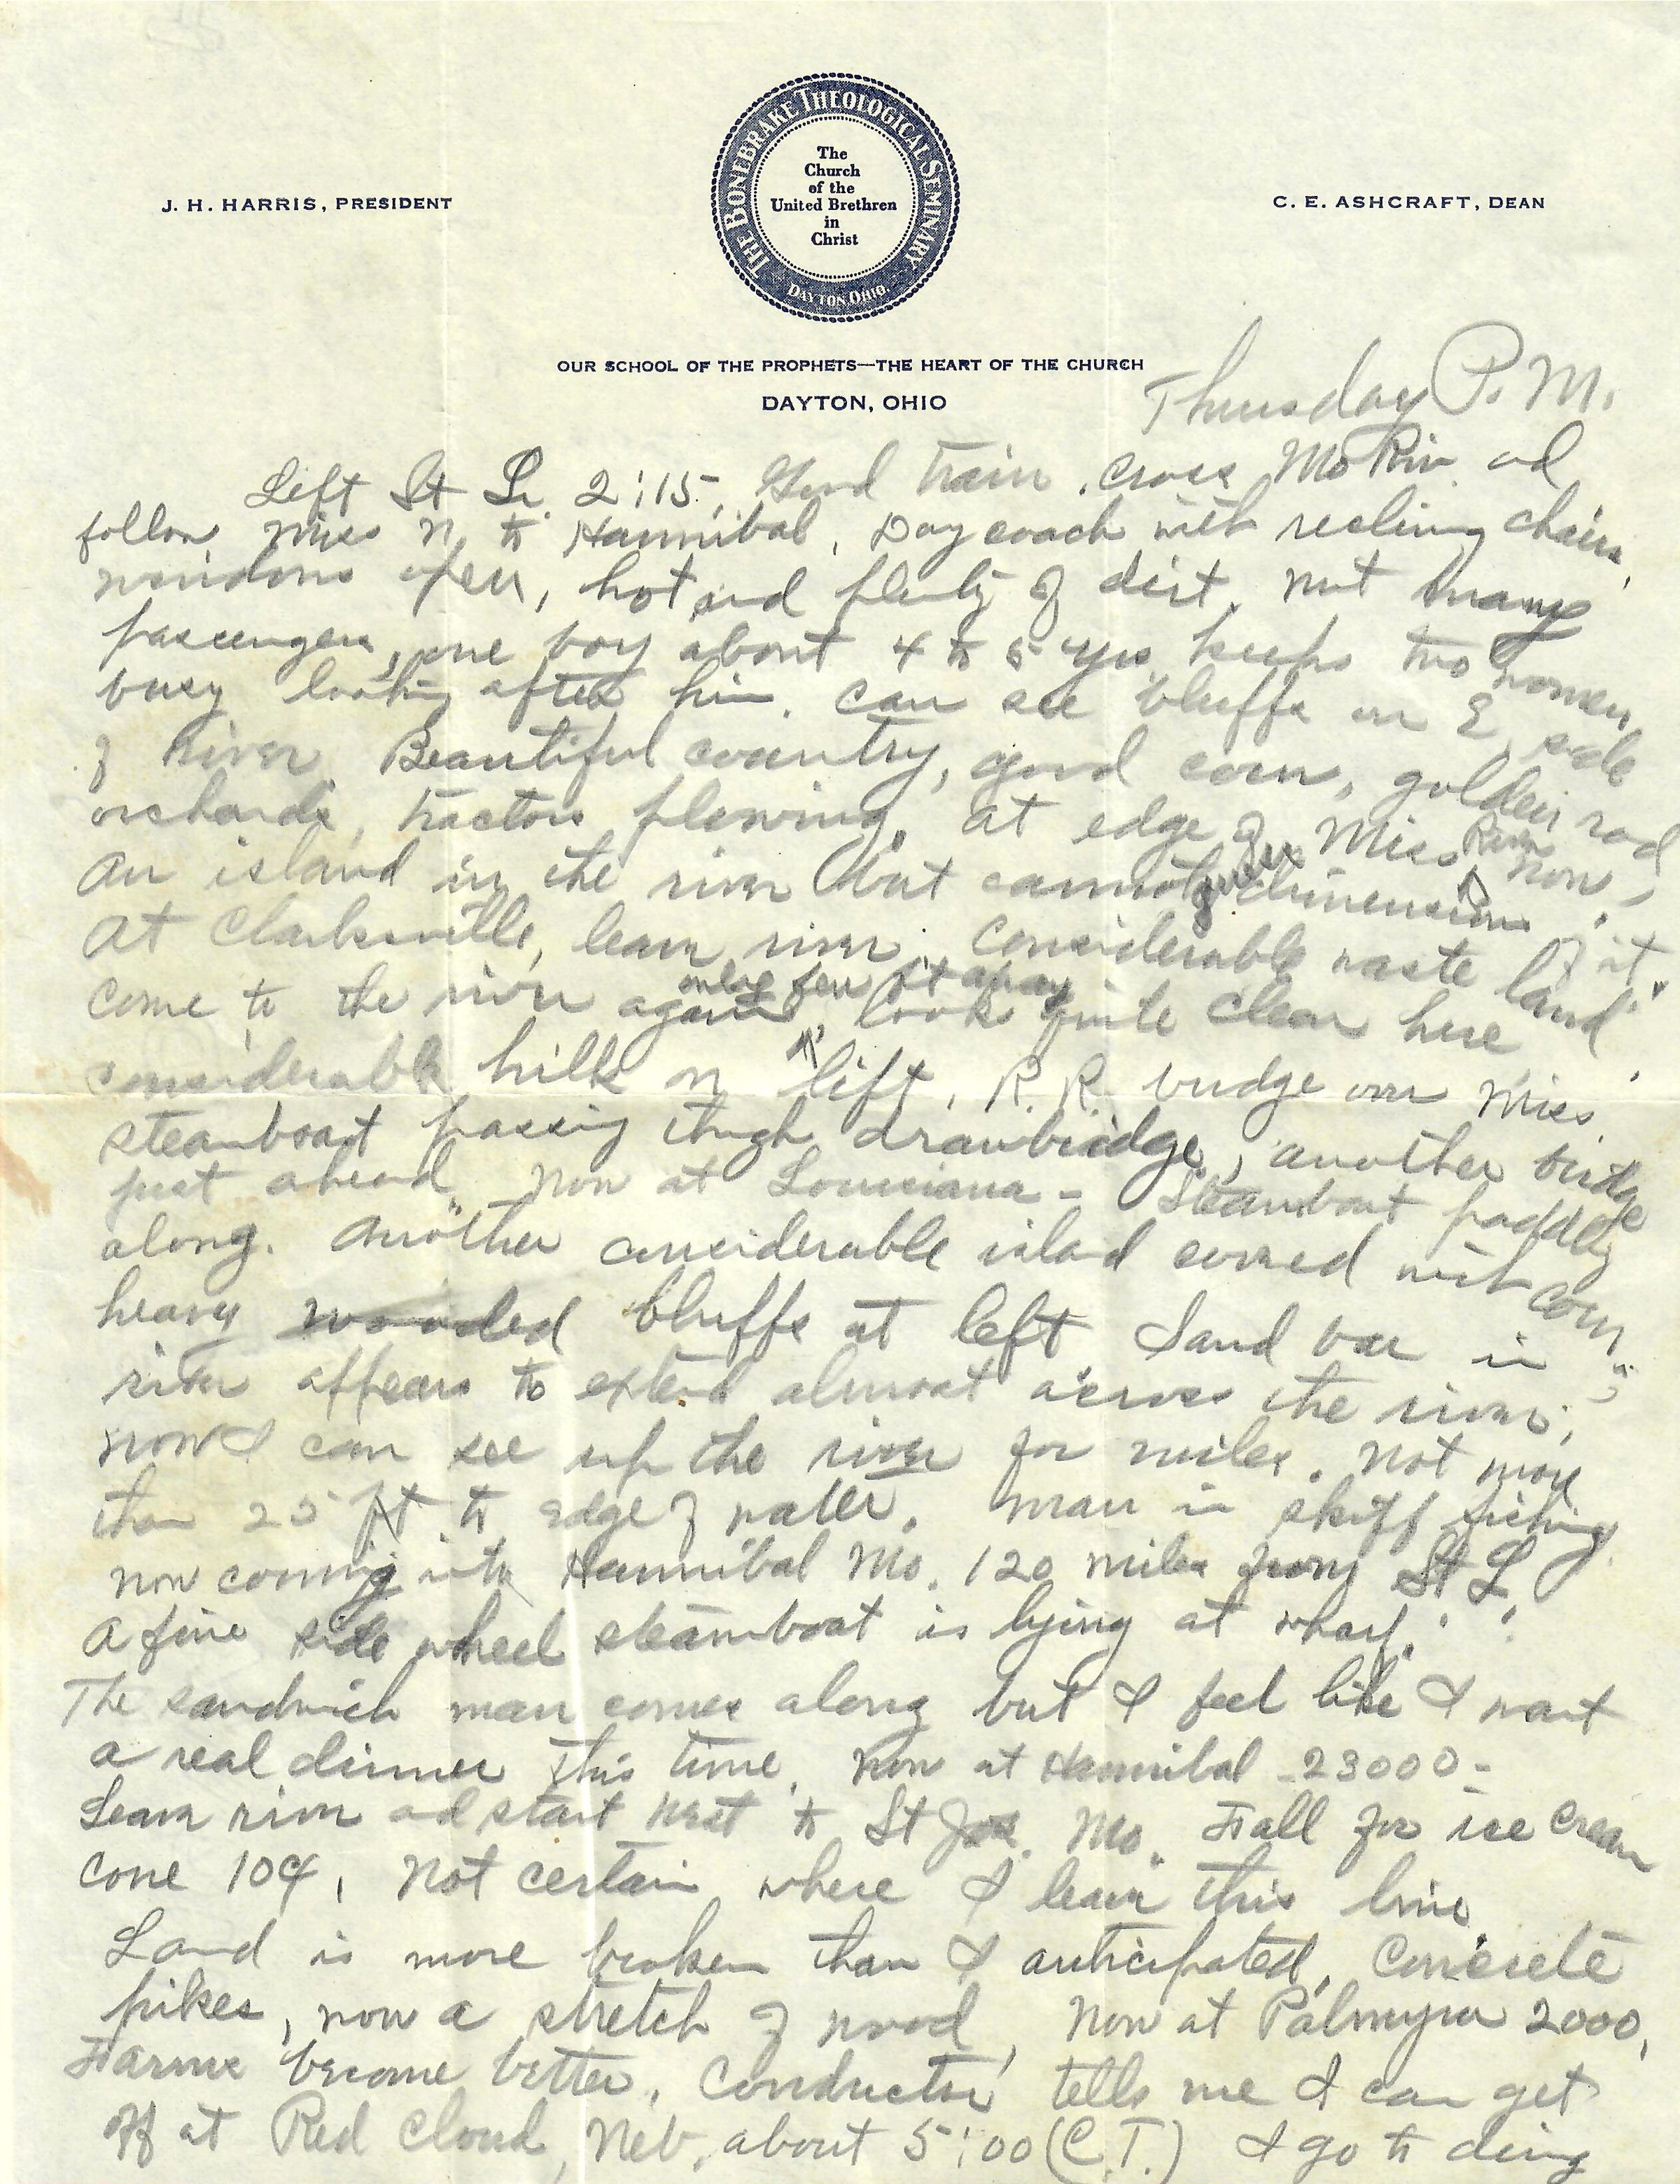 THE BONEBRAKE THEOLOGICAL SEMINARY
DAYTON, OHIO.
The
Church
of the
United Brethren
in
Christ
J. H. HARRIS, PRESIDENT
C. E. ASHCRAFT, DEAN
OUR SCHOOL OF THE PROPHETS—THE HEART OF THE CHURCH
DAYTON, OHIO
Thursday P. M.
Left St L. 2:15. Good train. Cross Mo Riv. ad
follow Miss N. to Hannibal, Day coach with reclining chairs,
windows open, hot and plenty of dirt. Not many
passengers, one boy about 4 to 5 yrs keeps two women
busy looking after him. Can see bluffs on E side
of River. Beautiful country, good corn, golden rod
orchards, tractors plowing. At edge of Miss River now,
An island in the river but cannot dimension of it.
At Clarksville, leave river. Considerable waste land.
Come to the river again, only few ft away look quite clear here
considerable hills on left, R. R. bridge over Miss.
steamboat passing though drawbridge, another bridge
just ahead. Now at Louisiana - Steamboat paddling
along. Another considerable island covered with corn,
heavy wooded bluffs at left Sand bar in
river appears to extend almost across the river,
now I can see up the river for miles. Not more
than 25 ft to edge of water. Man in skiff fishing.
now coming into Hannibal Mo. 120 miles from St L.
A fine side wheel steamboat is lying at wharf.
The sandwich man comes along but I feel like I want
a real dinner this time. Now at Hannibal - 23000 -
Leave river ad start West to St Jos. Mo. Fall for ice cream
cone 10¢, Not certain where I leave this line.
Land is more broken than I anticipated. Concrete
pikes, now a stretch of wood, Now at Palmyra 2000,
Farms become better. Conductor tells me I can get
off at Red Cloud, Neb. about 5:00 (C.T.) I go to ding